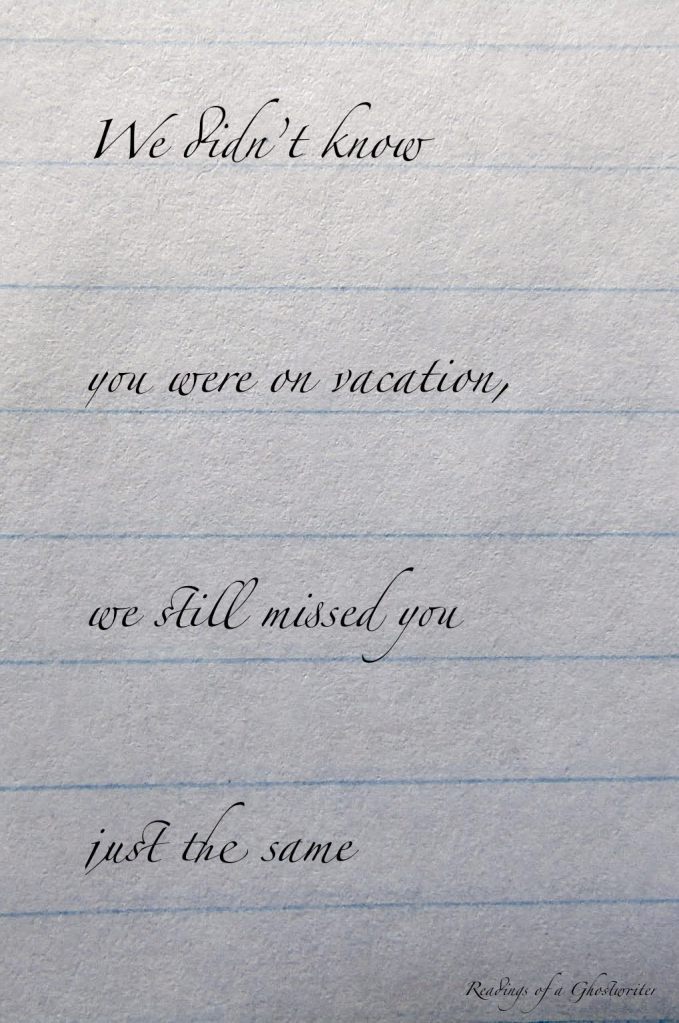 We didn't know
you were on vacation,
we still missed you
just the same
Readings of a Ghostwriter